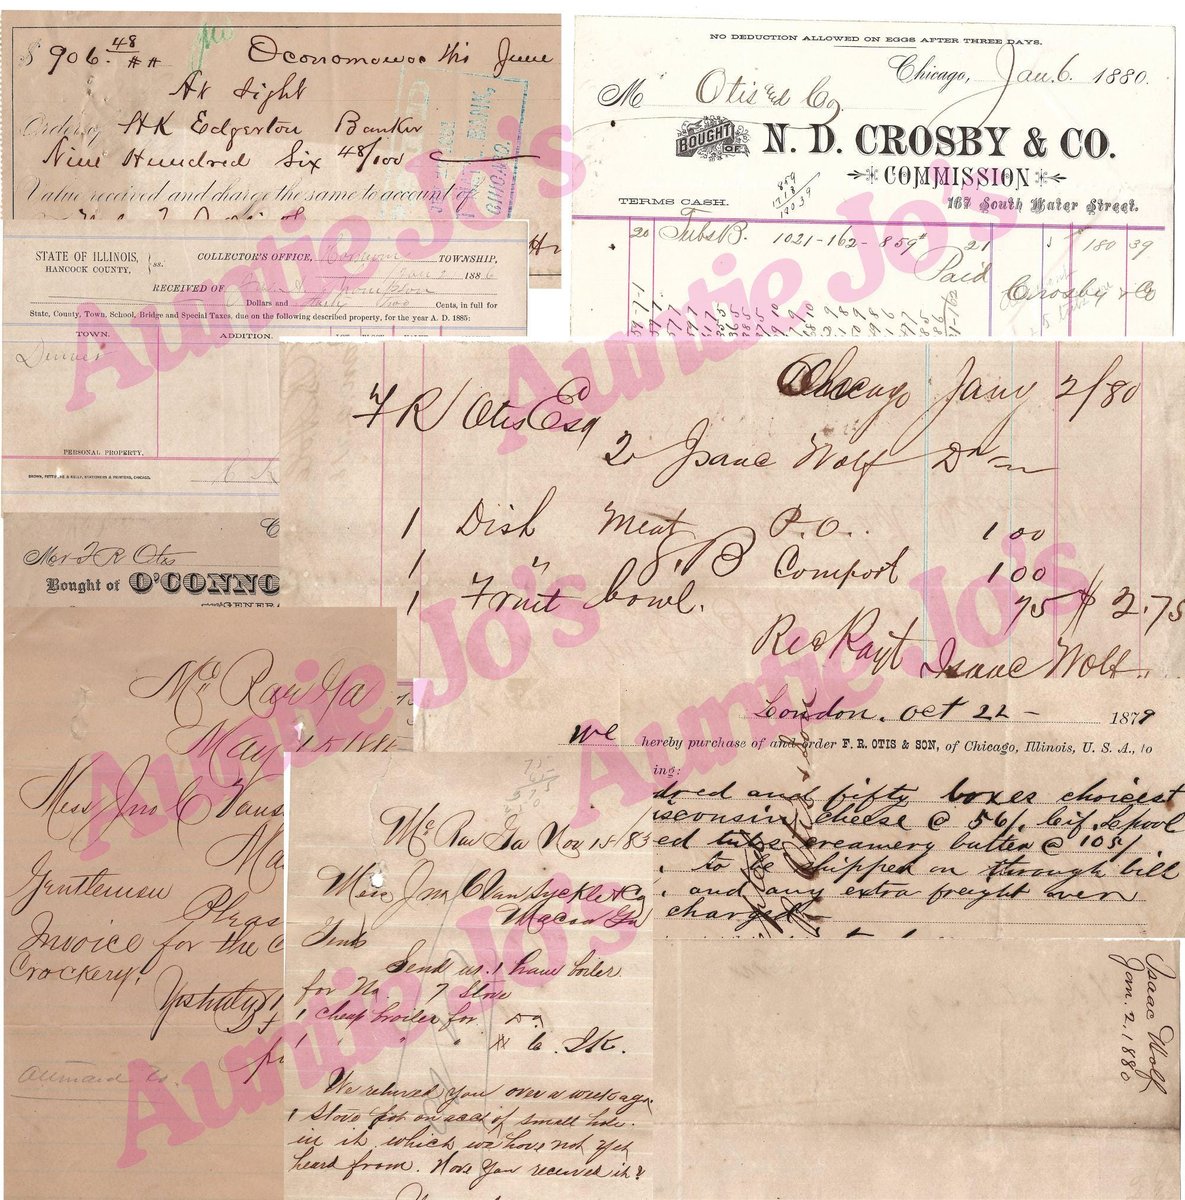 $ 906. 48/## Oconomowoc this June
At Sight
Order of H K Edgerton Banker
Nine Hundred Six 48/100
Value received and charge the same to account of
BANK,
CHICAGO.
STATE OF ILLINOIS, } ss.
HANCOCK COUNTY,
COLLECTOR'S OFFICE, TOWNSHIP,
188 6
RECEIVED OF
Dollars and Cents, in full for
State, County, Town, School, Bridge and Special Taxes, due on the following described property, for the year A. D. 1885:
TOWN. ADDITION.
PERSONAL PROPERTY.
NO DEDUCTION ALLOWED ON EGGS AFTER THREE DAYS.
Chicago, Jan. 6. 1880.
M Otis & Co
BOUGHT OF N. D. CROSBY & CO.
COMMISSION
TERMS CASH. 167 South Water Street.
20 Tubs B. 1021-162-859 21 180 39
Paid
Crosby & Co
Chicago Jany 2/80
F R Otis Esq
To Isaac Wolf Dr
1 Dish Meat P.O. 1 00
1 " S.B Comport 1 00
1 Fruit bowl. 75 $ 2.75
Rec Payt Isaac Wolf.
Mr F R Otis
Bought of O'CONNO
GENER
London. Oct 22 - 1879
we hereby purchase of and order F. R. OTIS & SON, of Chicago, Illinois, U. S. A., to
ing:
dred and fifty boxes choicest
isconsin cheese @ 56/. Cif. Lpool
ed tubs creamery butter @ 105/
to be shipped on through bill
and any extra freight over
charged
Mc Rae Ga
May 15 188
Mess Jno C Vans
Ma
Gentlemen
Pleas
Invoice for the C
Crockery.
Mc Rae Ga Nov 15/83
Mess Jno C Van Syckle & Co
Macon Ga
Gents
Send us. 1 ham boiler
for No. 7 Stove
1 cheap broiler for Do
We returned you over a week ago
1 stove pot on acct of small hole
in it which we have not yet
heard from. Have you received it?
Isaac Wolf
Jan. 2. 1880
Auntie Jo's
Auntie Jo's
Auntie Jo's
Auntie Jo's
Auntie Jo's